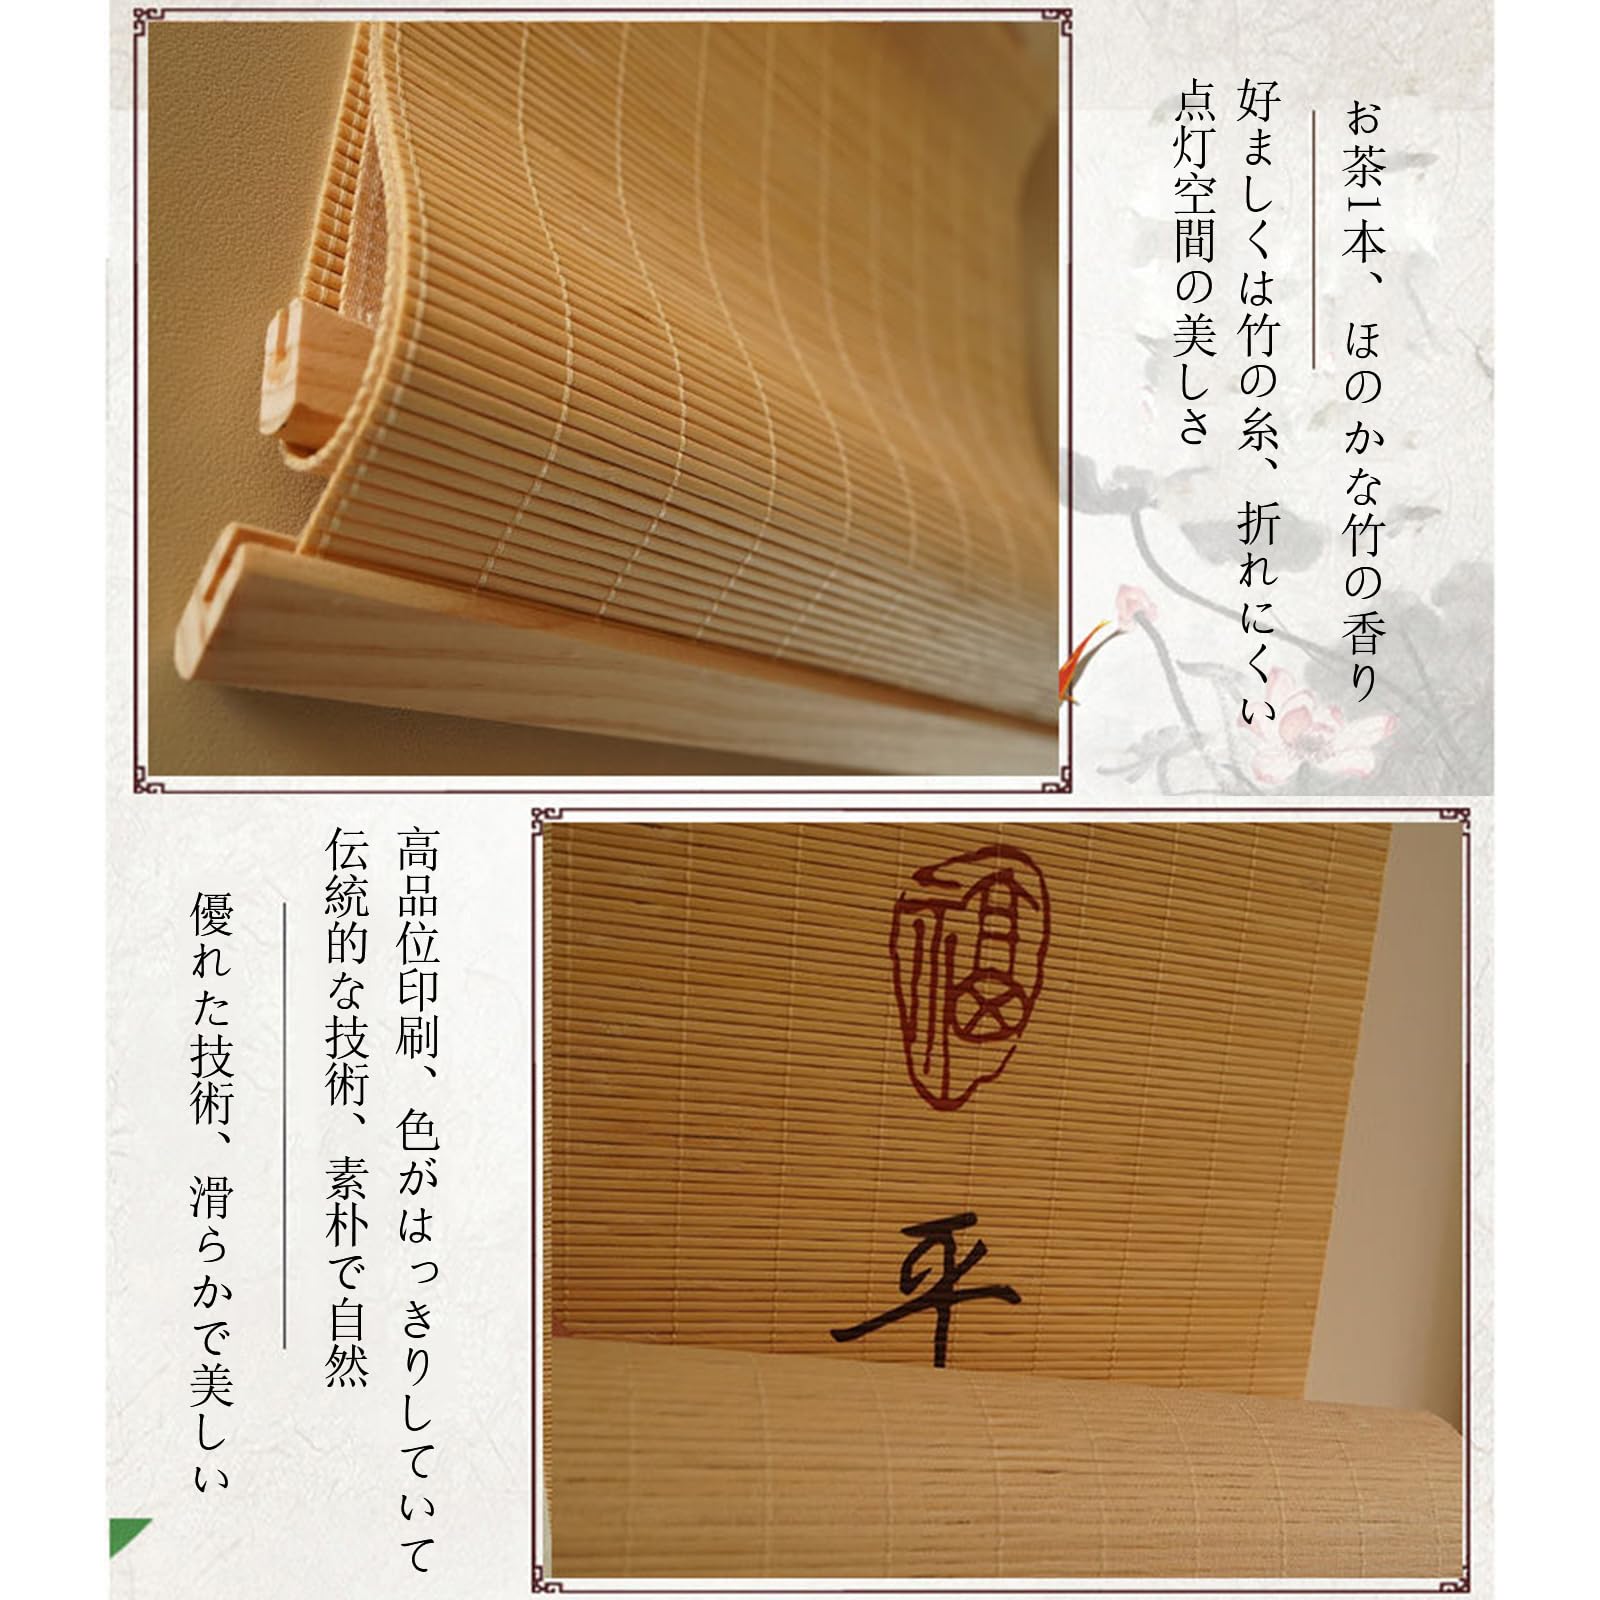 お茶1本、ほのかな竹の香り
好ましくは竹の糸、折れにくい
点灯空間の美しさ
高品位印刷、色がはっきりしていて
伝統的な技術、素朴で自然
優れた技術、滑らかで美しい
福
平